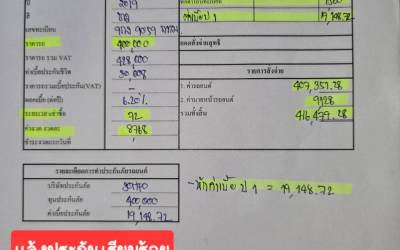 ปี 2019
สี ขาว
หักเบี้ยป1 19,148.72
เลขทะเบียน
ราคารถ 400,000
ยอดสั่งจ่ายสุทธิ
ราคารถ รวม VAT 428,000
ค่าเบี้ยประกันชีวิต
รายการสั่งจ่าย
ราคารถรวมเบี้ยประกัน(VAT) -
1. ค่ารถยนต์ 407,351.28
ดอกเบี้ย (ต่อปี) 6.20%
2. ค่านายหน้ารถยนต์ 9128
ระยะเวลาเช่าซื้อ 72
รวมทั้งสิ้น 416,479.28
ค่างวด งวดละ 8768
ชำระงวดแรกวันที่
รายละเอียดการทำประกันภัยรถยนต์
บริษัทประกันภัย
ทุนประกันภัย 400,000
ค่าเบี้ยประกันภัย 19,148.72
- หักค่าเบี้ย ป1 = 19,148.72